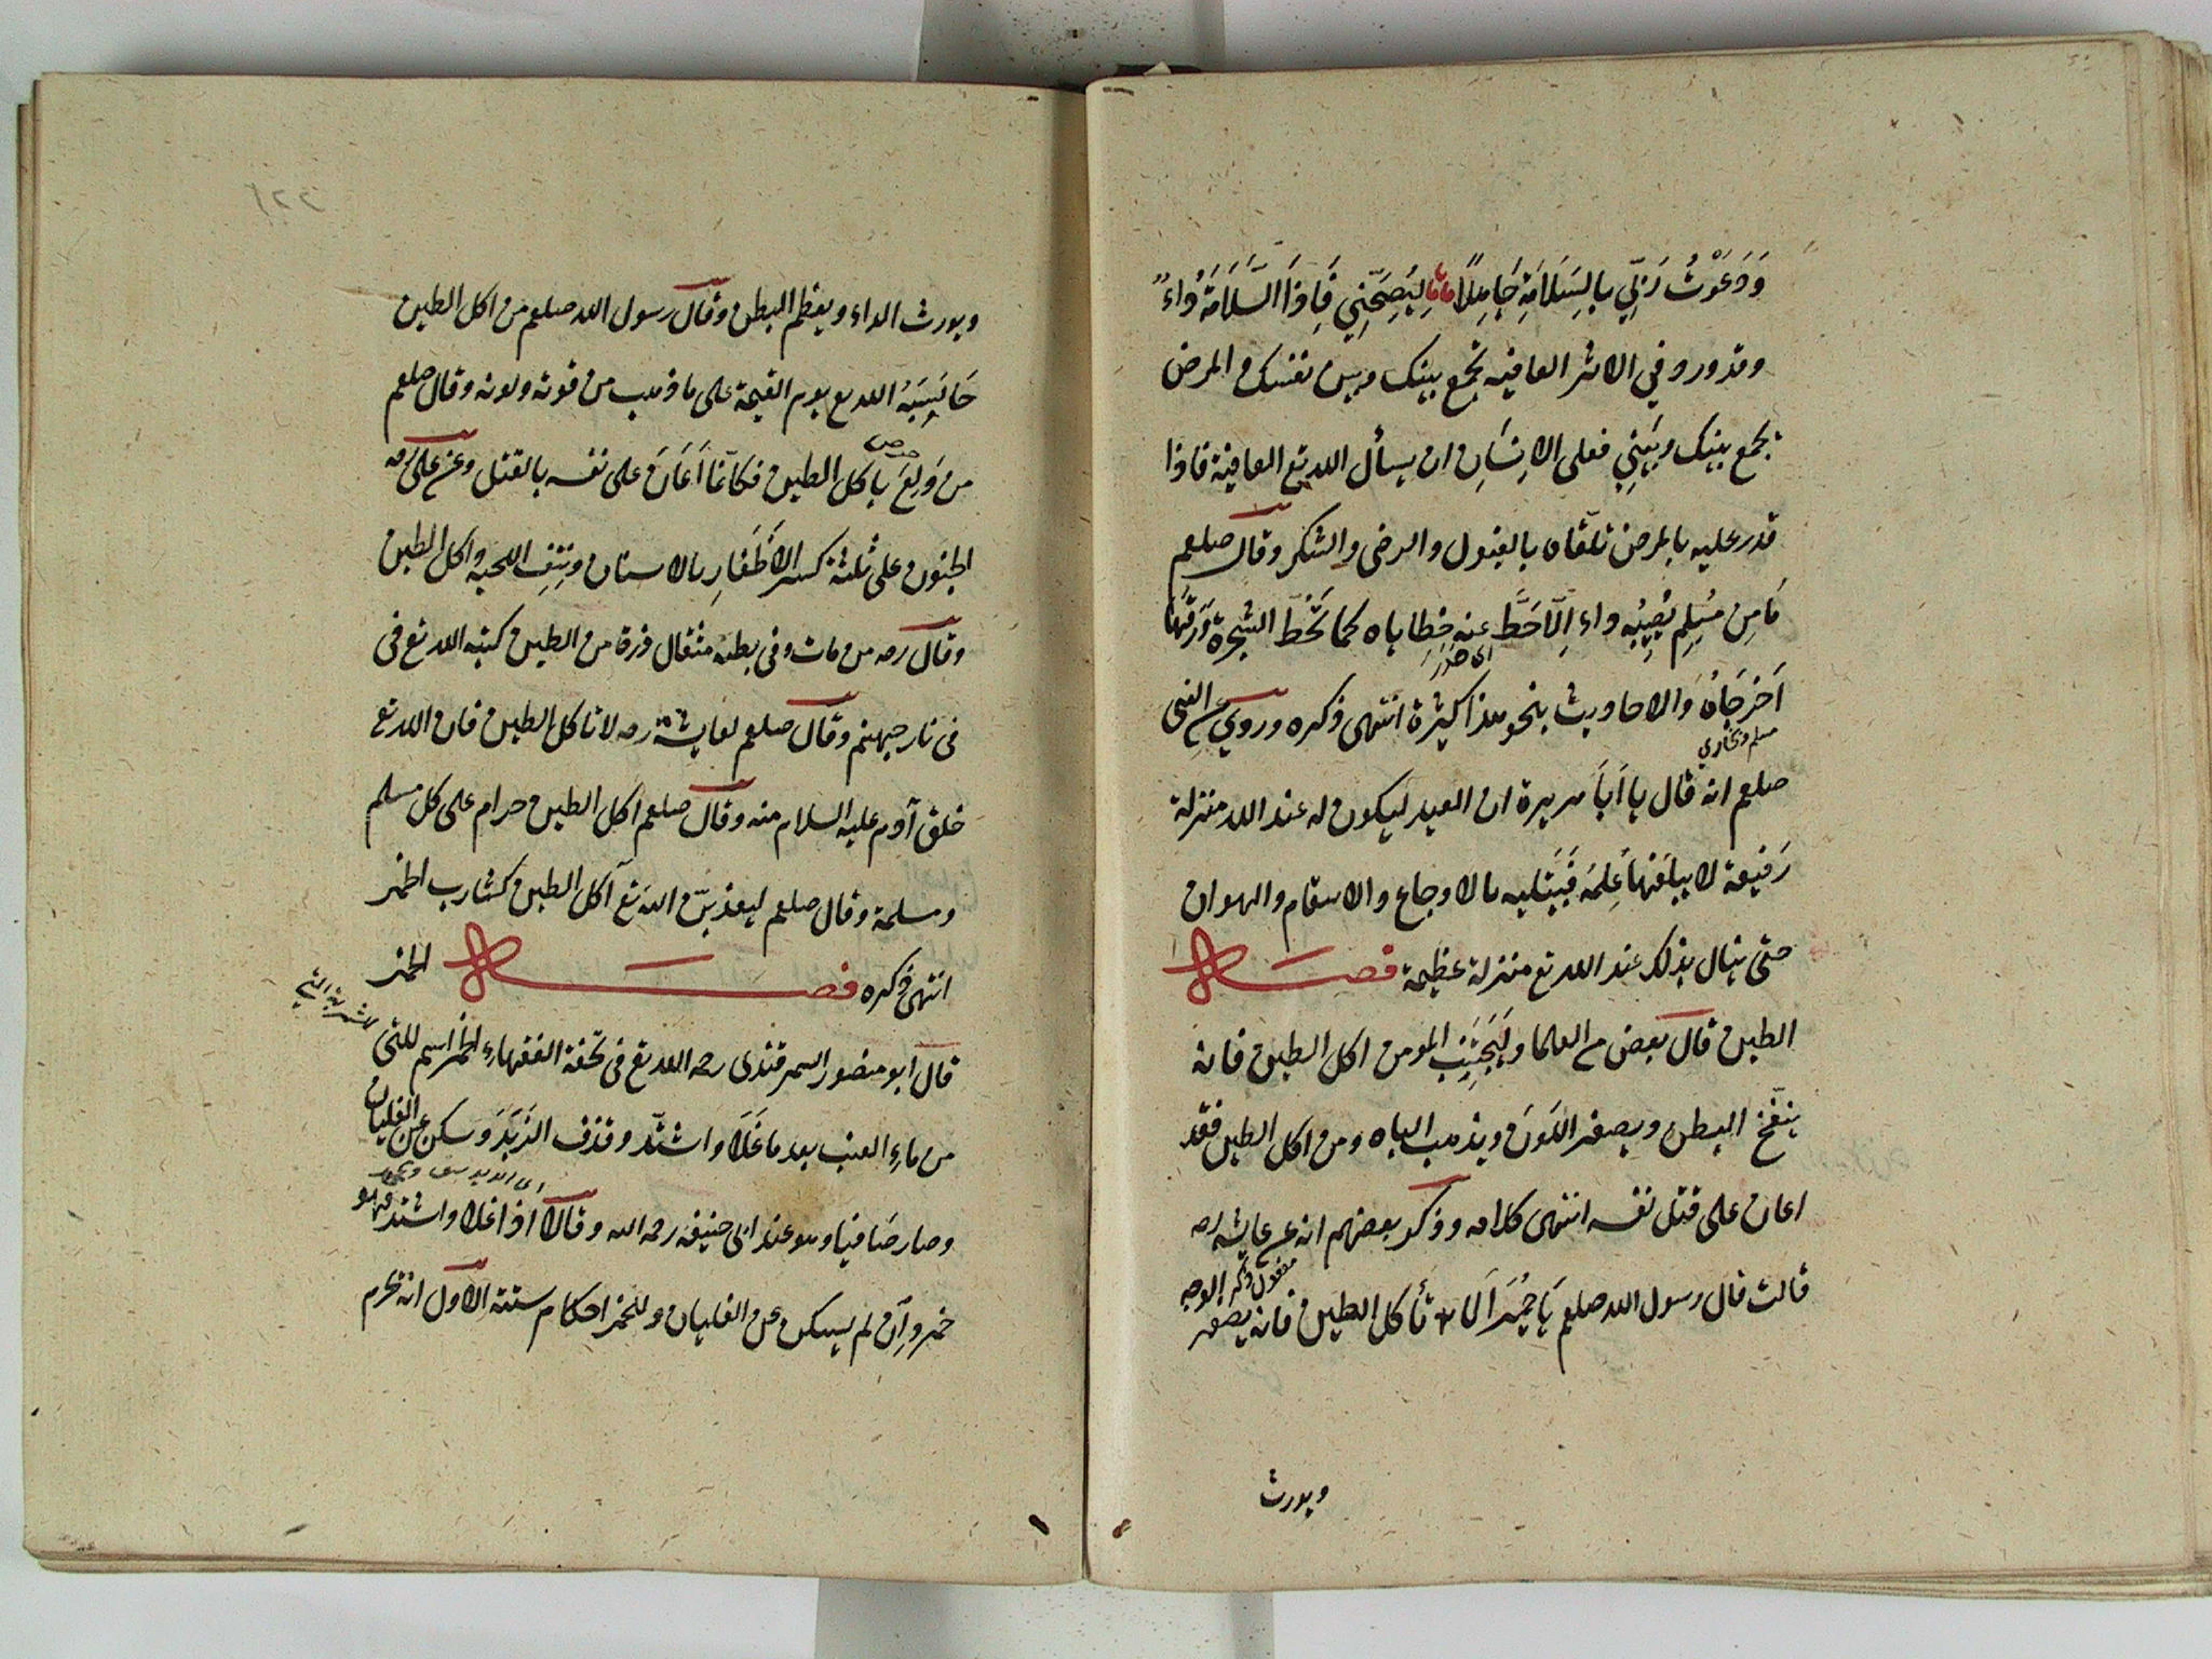 وَدَعَوْتُ رَبِّي بِالسَّلَامَةِ جَاهِلًا لِيُصَحِّنِي فَاِذَا السَّلَامَةُ دَاءٌ
وقد ورد في الاثر العافيه تجمع بينك وبين نفسك والمرض
يجمع بينك وبَيْنِي فعلى الاِنسَانِ ان يسأل الله تع العافية فاذا
قدر عليه بالمرض تلقاه بالقبول والرضى والشكر وقال صلعم
مَا مِن مُسْلِمٍ يُصِيْبُه داء اِلَّا حَطَّ عنه خطاياه كما تَحُطّ الشجرة وَرَقَهَا
اَخرَجَاهُ والاحاديث بنحو هذا كثيرة انتهى ذكره وروي عن النبي
مسلم وبخاري
صلعم انه قال يا اَبَا هريرة ان العبد ليكون له عند الله منزلة
رَفيعة لا يبلغها عمله فَيَبتليه بالاوجاع والاسقام والهوان
حتى ينال بذلك عند الله تع منزلة عظيمة فصل
الطين قال بعض من العلما ولْيَجْتَنِبِ المومن اكل الطين فانه
ينفّخ البطن ويصفر اللَون ويذهب الباه ومن اكل الطين فقد
اعان على قتل نفسه انتهى كلامه وذكر بعضهم انه عن عايشه رضه
قالت قال رسول الله صلعم يَا حُمَيْرَاَ لا تأكل الطين فانه يصفر الوجه
ويورث
ويورث الداء ويعظم البطن وقال رسول الله صلعم من اكل الطين
حَاسَبَهُ الله تع يوم القيمة على ما ذهب من قوته ولونه وقال صلعم
من وَلِعَ باكل الطين فكاَنّما اَعَانَ على نفسه بالقتل وعن علي رضه
الجنون على ثلثة كسر الاَظْفَارِ بالاسنان ونتف اللحية واكل الطين
وقال رضه من مات وفي بطنه مثقال ذرة من الطين كبّه الله تع في
في نار جهنم وقال صلعم لعايشة رضه لا تاكل الطين فان الله تع
خلق آدم عليه السلام منه وقال صلعم اكل الطين حرام على كل مسلم
ومسلمة وقال صلعم ليعذبنّ الله تع آكل الطين كشارب الخمر
انتهى ذكره فصل الخمر
قال ابو منصور السمرقندى رحمه الله تع في تحفة الفقهاء الخمر اسم للنى
من ماء العنب بعد ما غَلَا واشتدّ وقذف الزَبَدَ وسكن عن الغليان
وصار صَافيا وهو عند ابى حنيفه رحمه الله وقالا اذا غلا واشتد فهو
خمر وان لم يسكن عن الغليان وللخمر احكام ستة الاول انه يحرم